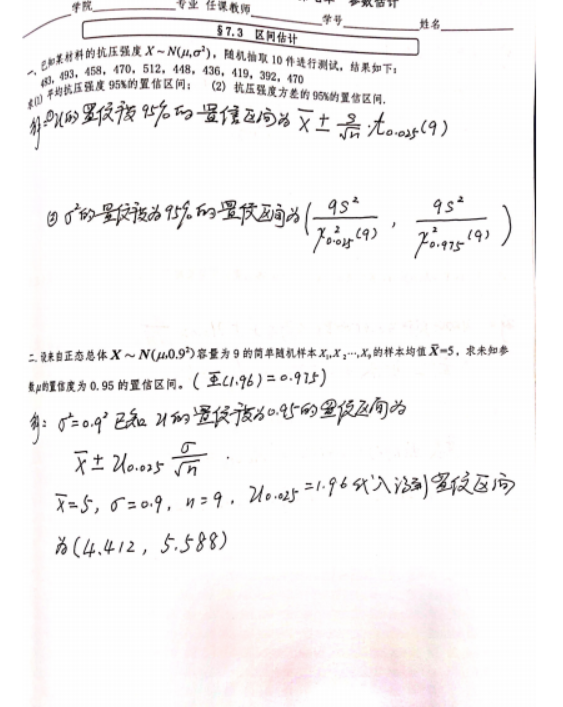 学院 专业 任课教师 学号 姓名
参数估计
§7.3 区间估计
一、已知某材料的抗压强度 X～N(μ,σ²)，随机抽取10件进行测试，结果如下：
483, 493, 458, 470, 512, 448, 436, 419, 392, 470
求(1) 平均抗压强度95%的置信区间； (2) 抗压强度方差的95%的置信区间.
解:① μ的置信度95%的置信区间为 X̄ ± S/√n · t₀.₀₂₅(9)
② σ²的置信度为95%的置信区间为 ( 9S²/χ²₀.₀₂₅(9) , 9S²/χ²₀.₉₇₅(9) )
二、设来自正态总体 X～N(μ,0.9²)容量为9的简单随机样本X₁,X₂,…,X₉的样本均值X̄=5，求未知参
数μ的置信度为0.95的置信区间。(Φ(1.96)=0.975)
解: σ²=0.9² 已知 μ的置信度为0.95的置信区间为
X̄ ± u₀.₀₂₅ σ/√n .
X̄=5, σ=0.9, n=9, u₀.₀₂₅=1.96代入得到置信区间
为(4.412, 5.588)